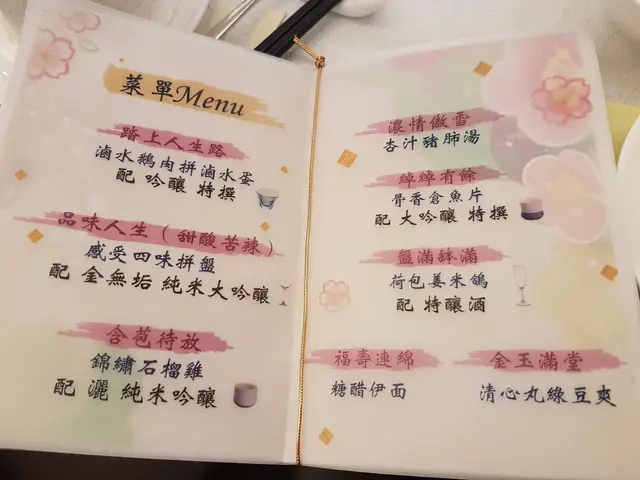 菜單Menu
踏上人生路
滷水鵝肉拼滷水蛋
配 吟釀 特撰
品味人生（甜酸苦辣）
感受四味拼盤
配 金無垢 純米大吟釀
含苞待放
錦繡石榴雞
配 灑 純米吟釀
濃情傲雪
杏汁豬肺湯
綽綽有餘
骨香倉魚片
配 大吟釀 特撰
盤滿缽滿
荷包姜米鴿
配 特釀酒
福壽連綿
糖醋伊面
金玉滿堂
清心丸綠豆爽